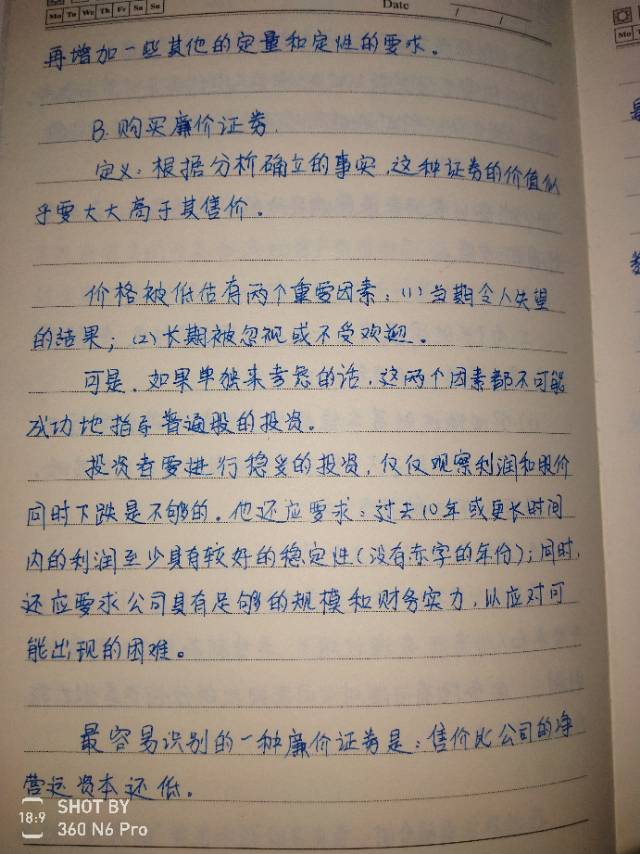 Mo Tu We Th Fr Sa Su
Date
再增加一些其他的定量和定性的要求。
B.购买廉价证券.
定义：根据分析确立的事实，这种证券的价值似
乎要大大高于其售价。
价格被低估有两个重要因素：(1)当期令人失望
的结果；(2)长期被忽视或不受欢迎。
可是，如果单独来考虑的话，这两个因素都不可能
成功地指导普通股的投资。
投资者要进行稳妥的投资，仅仅观察利润和股价
同时下跌是不够的。他还应要求：过去10年或更长时间
内的利润至少具有较好的稳定性(没有赤字的年份)；同时，
还应要求公司具有足够的规模和财务实力，以应对可
能出现的困难。
最容易识别的一种廉价证券是：售价比公司的净
营运资本还低。
18:9
SHOT BY
360 N6 Pro
Mo